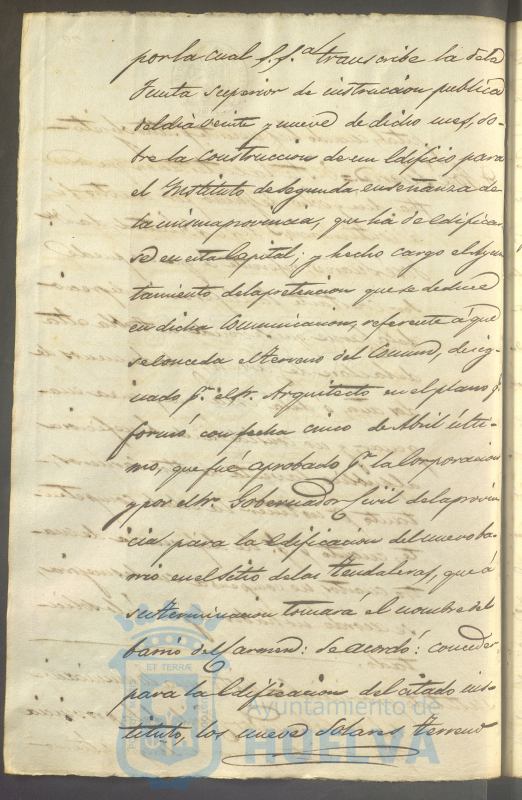 por la cual S. S.ª transcribe la de la
Junta Superior de instrucción publica
del dia veinte y nueve de dicho mes, so-
bre la construccion de un Edificio para
el Instituto de segunda enseñanza de
la misma provincia, que ha de edificar-
se en esta Capital; y hecho cargo el Ayun-
tamiento de la pretencion que se deduce
en dicha Comunicacion, referente á que
se conceda el terreno del Comun, desig-
nado p.r el Sr. Arquitecto en el plano q.e
formó con fecha cinco de Abril últi-
mo, que fué aprobado p.r la Corporacion
y por el Sr. Gobernador Civil de la provin-
cia para la edificacion del nuevo ba-
rrio en el Sitio de las Tendaleras, que á
su terminacion tomará el nombre del
barrio del Carmen: Se acordó: conceder
para la Edificacion del citado ins-
tituto, los nueve Solares terreno
ET TERRÆ
Ayuntamiento de
HUELVA